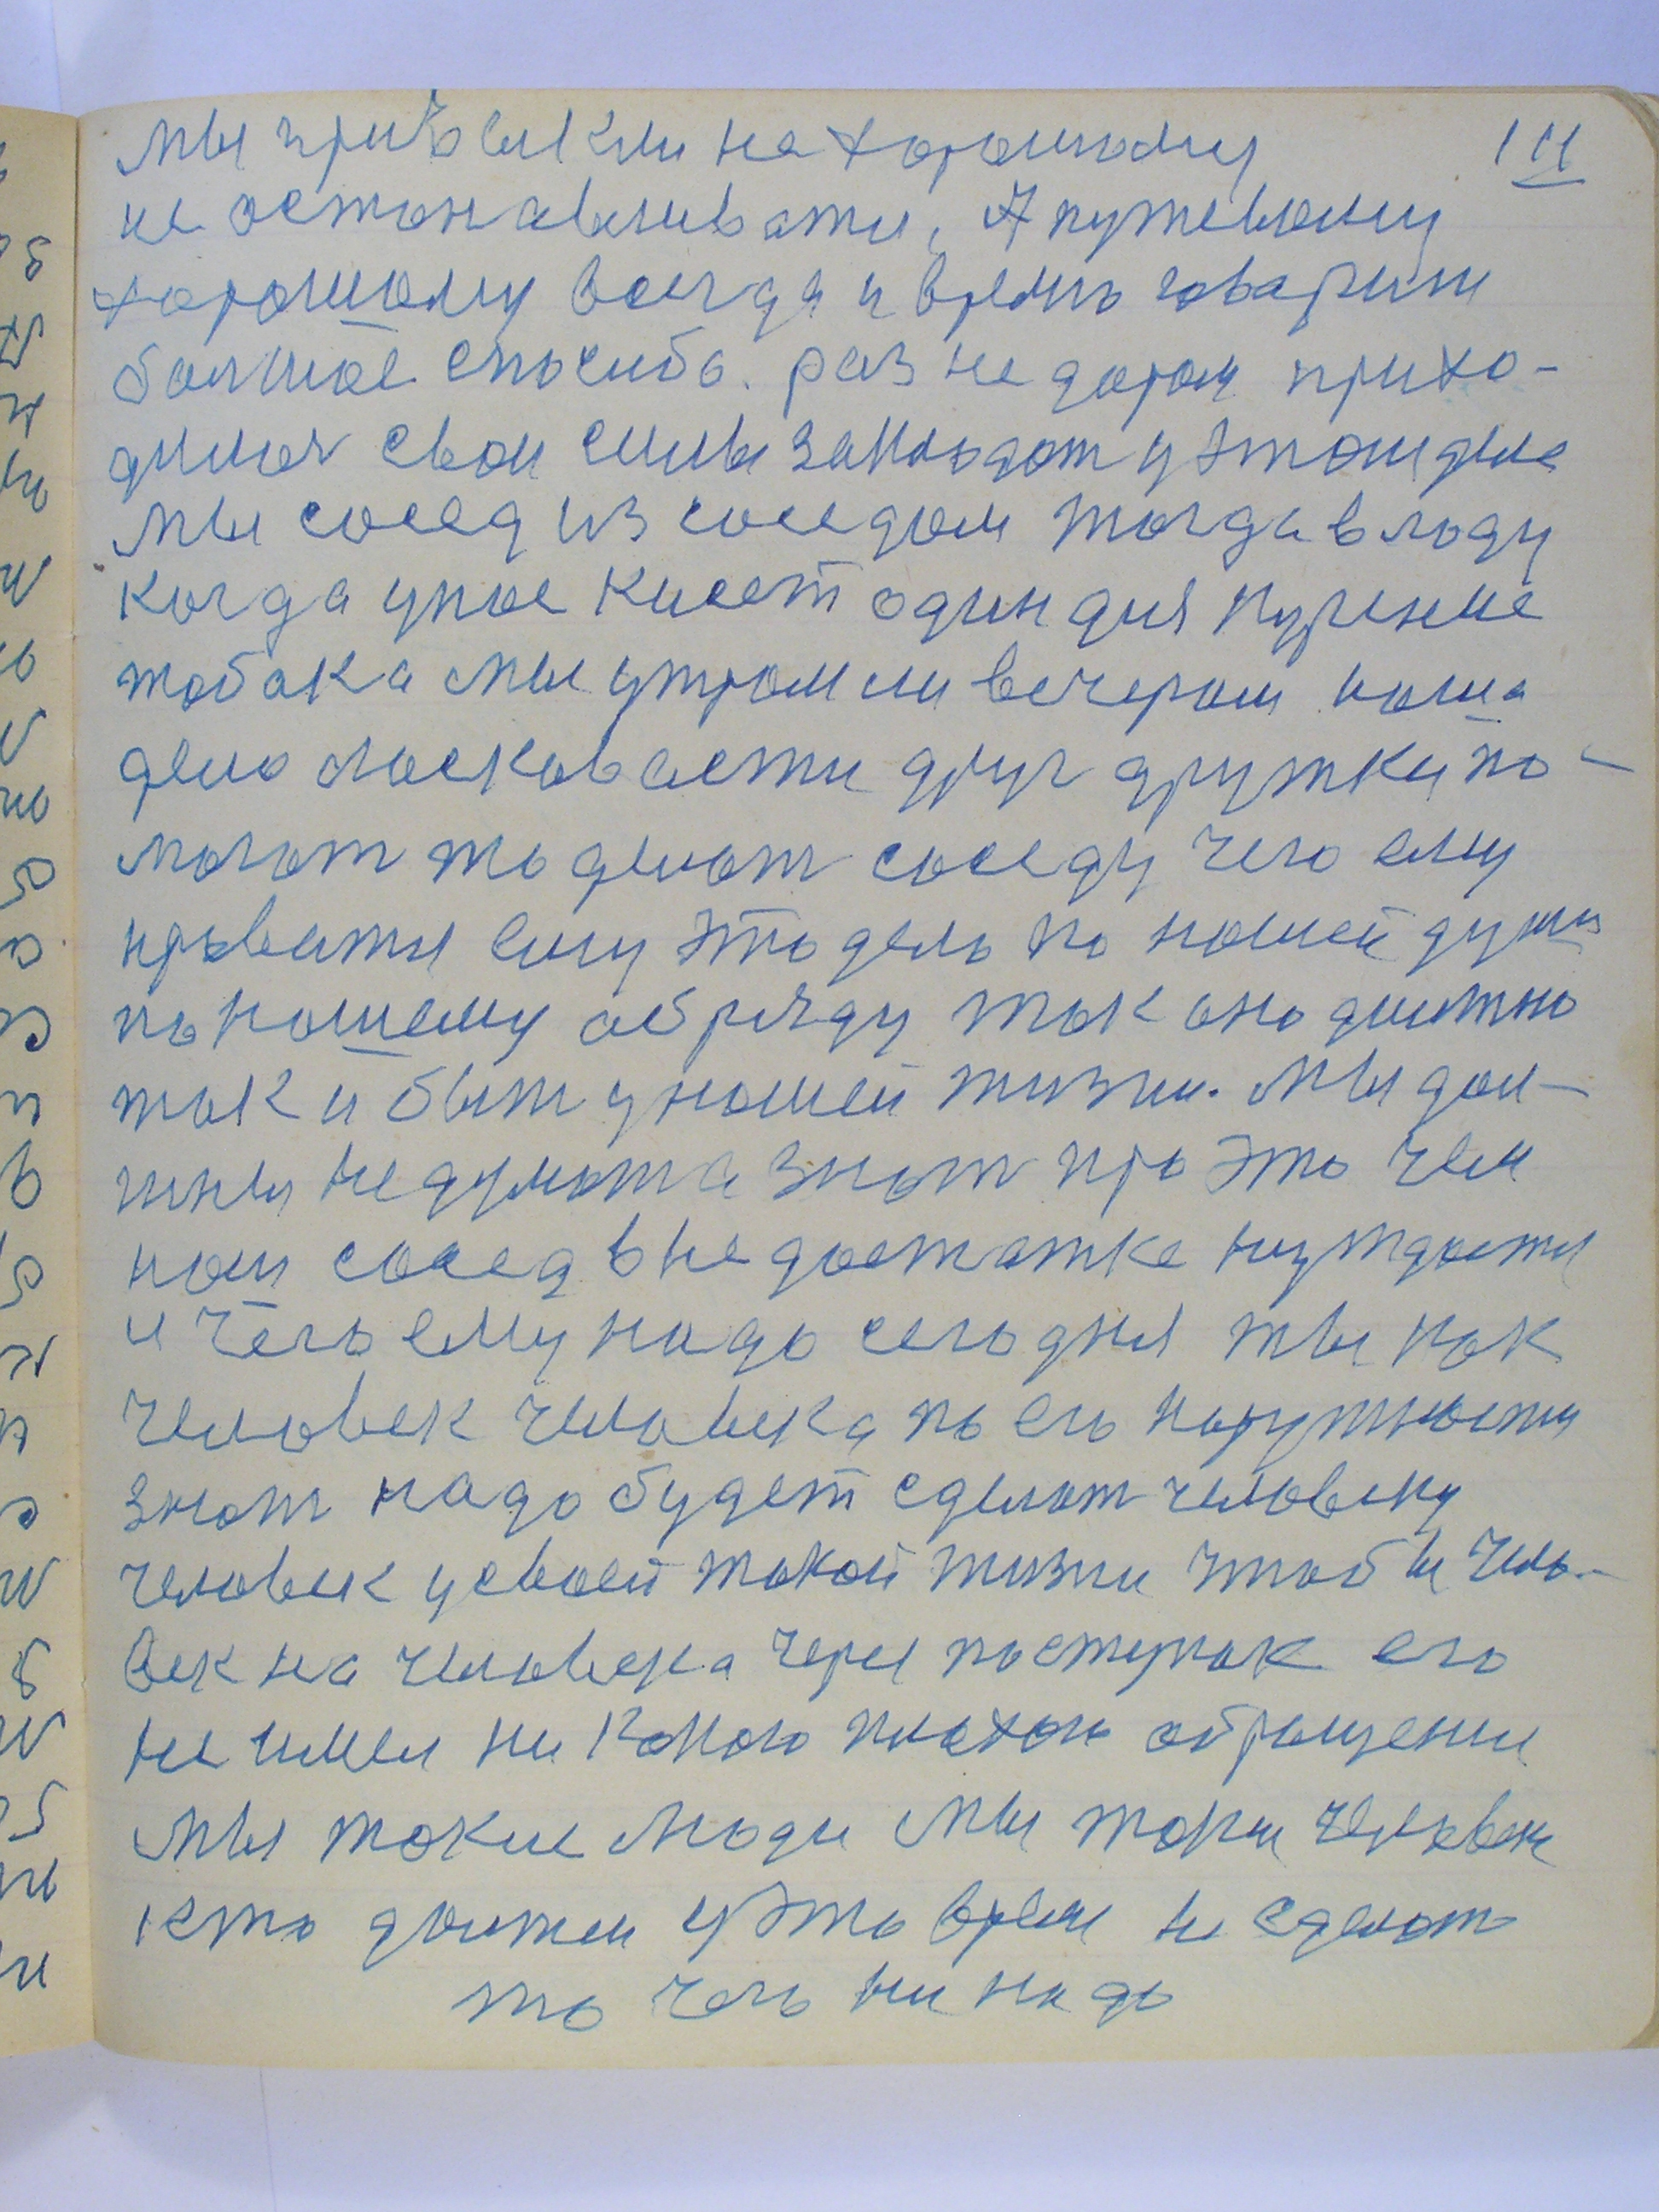 111
мы привыкли не хорошому
не останавливати, А путевому
хорошому всегда и времь говарили
большое спосибо. раз не даром прихо-
димся свои силы закладат у этом деле
мы сосед из соседом тогда в ладу
когда у нас кисет один для курение
тобака мы утром ли вечером наша
дело ласковасти друг дружки по-
могат то делат соседу чего ему
нравится ему это дело по нашей души
по нашему обряду так оно должно
так и быт у нашей жизни. Мы дол-
жны не думат а знат про это чем
наш сосед в недостатке нуждается
и чего ему надо сегодня ты как
человек человека по его наружности
знат надо будет сделат человеку
человек у своей такой жизни чтобы чело-
век на человека через поступак его
не имел ни какого плохого обращения
мы такие люди мы тоже человек
кто должен у это время не сделат
то чего ни надо